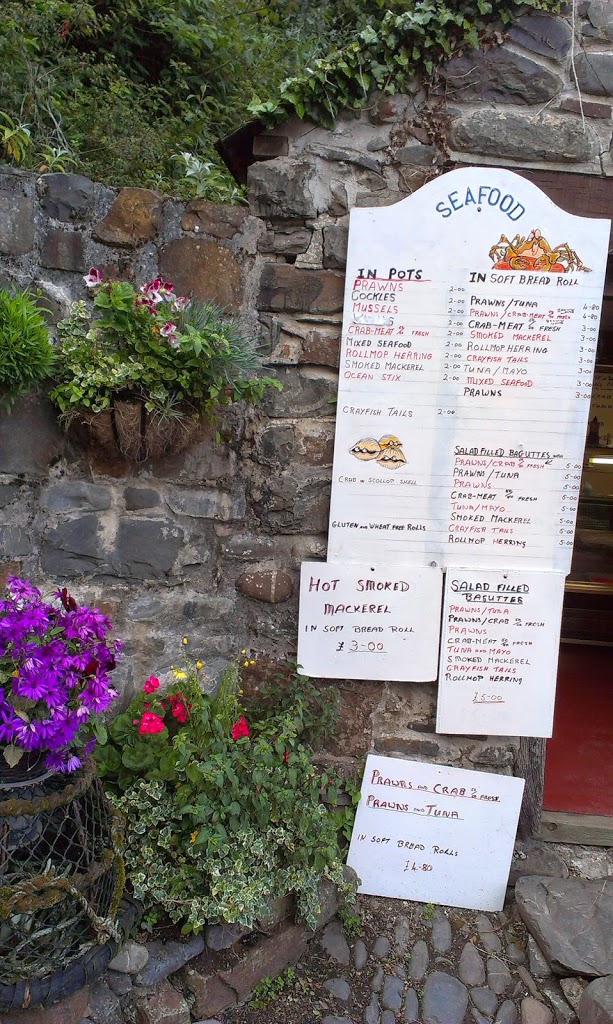 SEAFOOD
IN POTS
PRAWNS 2-00
COCKLES
MUSSELS 2-00
2-00
CRAB-MEAT FRESH 2-00
MIXED SEAFOOD 2-00
ROLLMOP HERRING 2-00
SMOKED MACKEREL 2-00
OCEAN STIX 2-00
CRAYFISH TAILS 2-00
CRAB IN SCOLLOP SHELL
GLUTEN AND WHEAT FREE ROLLS
IN SOFT BREAD ROLL
PRAWNS/TUNA 4-80
PRAWNS/CRAB-MEAT FRESH 4-80
CRAB-MEAT FRESH 3-00
SMOKED MACKEREL 3-00
ROLLMOP HERRING 3-00
CRAYFISH TAILS 3-00
TUNA/MAYO 3-00
MIXED SEAFOOD 3-00
PRAWNS 3-00
SALAD FILLED BAGUTTES
PRAWNS/CRAB FRESH 5-00
PRAWNS/TUNA 5-00
PRAWNS 5-00
CRAB-MEAT FRESH 5-00
TUNA/MAYO 5-00
SMOKED MACKEREL 5-00
CRAYFISH TAILS 5-00
ROLLMOP HERRING 5-00
HOT SMOKED
MACKEREL
IN SOFT BREAD ROLL
£ 3-00
SALAD FILLED
BAGUTTES
PRAWNS/TUNA
PRAWNS/CRAB FRESH
PRAWNS
CRAB-MEAT FRESH
TUNA AND MAYO
SMOKED MACKEREL
CRAYFISH TAILS
ROLLMOP HERRING
£5-00
PRAWNS AND CRAB FRESH
PRAWNS AND TUNA
IN SOFT BREAD ROLLS
£4-80